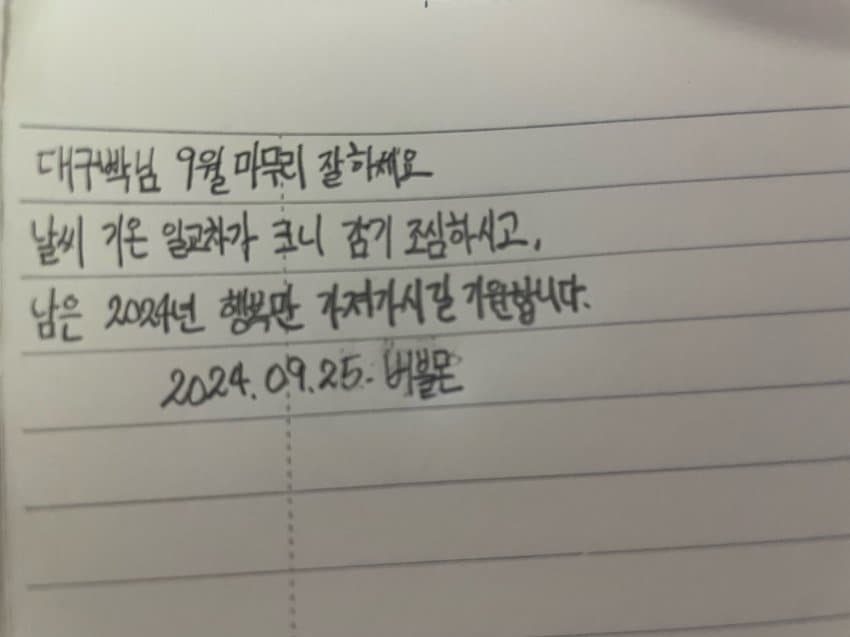 대구빡님 9월 마무리 잘하세요
날씨 기온 일교차가 크니 감기 조심하시고,
남은 2024년 행복만 가져가시길 기원합니다.
2024.09.25. 버블몬